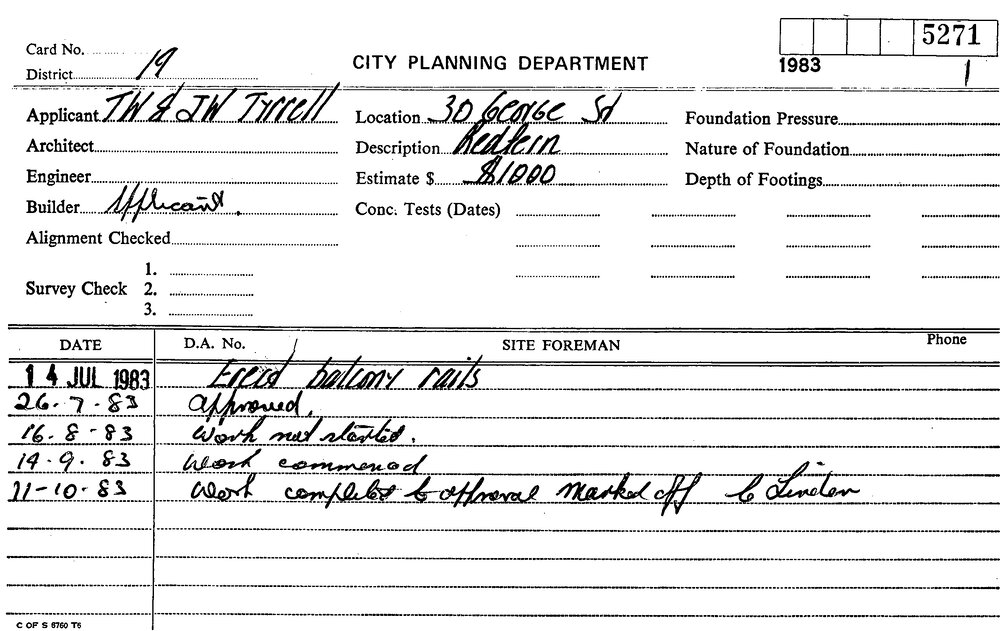 5271
Card No.
1983 1
District 19
CITY PLANNING DEPARTMENT
Applicant TW & JW Tyrrell
Location 30 George St
Foundation Pressure
Architect
Description Redfern
Nature of Foundation
Engineer
Estimate $ $1000
Depth of Footings
Builder Applicant.
Conc. Tests (Dates)
Alignment Checked
Survey Check 1.
2.
3.
DATE D.A. No. / SITE FOREMAN Phone
14 JUL 1983 Erect balcony rails
26-7-83 Approved.
16-8-83 Work not started.
14-9-83 Work commenced
11-10-83 Work completed to approval Marked off C Linden
C OF S 6760 T6